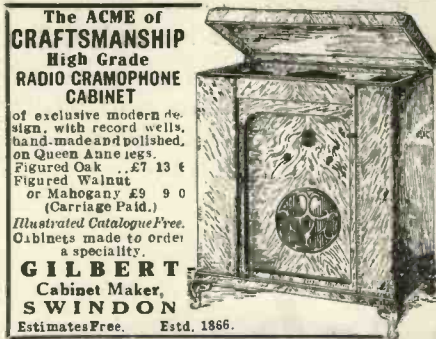 The ACME of
CRAFTSMANSHIP
High Grade
RADIO GRAMOPHONE
CABINET
of exclusive modern de-
sign, with record wells,
hand-made and polished,
on Queen Anne legs.
Figured Oak .. £7 13 6
Figured Walnut
or Mahogany £9 9 0
(Carriage Paid.)
Illustrated Catalogue Free.
Cabinets made to order
a speciality.
GILBERT
Cabinet Maker,
SWINDON
Estimates Free. Estd. 1866.